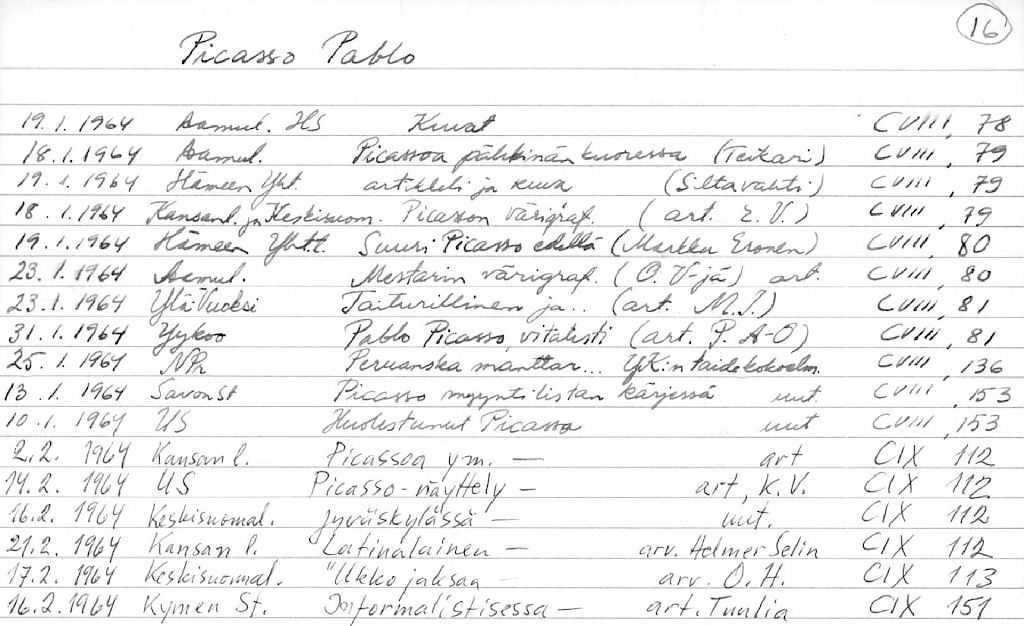 16
Picasso Pablo
19.1.1964 Aamul. HS Kuvat CVIII, 78
18.1.1964 Aamul. Picassoa pähkinänkuoressa (Teikari) CVIII, 79
19.1.1964 Hämeen Yht. artikkeli ja kuva (Siltavahti) CVIII, 79
18.1.1964 Kansanl. ja Keskisuom. Picasson värigraf. (art. E.V.) CVIII, 79
19.1.1964 Hämeen Yht. Suuri Picasso edellä (Markku Eronen) CVIII, 80
23.1.1964 Aamul. Mestarin värigraf. (O. V-jä) art. CVIII, 80
23.1.1964 Ylä-Vuoksi Taiturillinen ja.. (art. M.I.) CVIII, 81
31.1.1964 Yykoo Pablo Picasso, vitalisti (art. P. A-O) CVIII, 81
25.1.1964 NPr Peruanska manttar... YK:n taidekokoelm. CVIII, 136
13.1.1964 SavonSt Picasso myyntilistan kärjessä uut. CVIII, 153
10.1.1964 US Huolestunut Picasso uut CVIII, 153
2.2. 1964 Kansan l. Picassoa ym. — art CIX 112
14.2. 1964 US Picasso-näyttely — art, K.V. CIX 112
16.2. 1964 Keskisuomal. Jyväskylässä — uut. CIX 112
21.2. 1964 Kansan l. Latinalainen — arv. Helmer Selin CIX 112
17.2. 1964 Keskisuomal. "Ukko jaksaa — arv. O.H. CIX 113
16.2.1964 Kymen St. Informalistisessa — art. Tuulia CIX 151